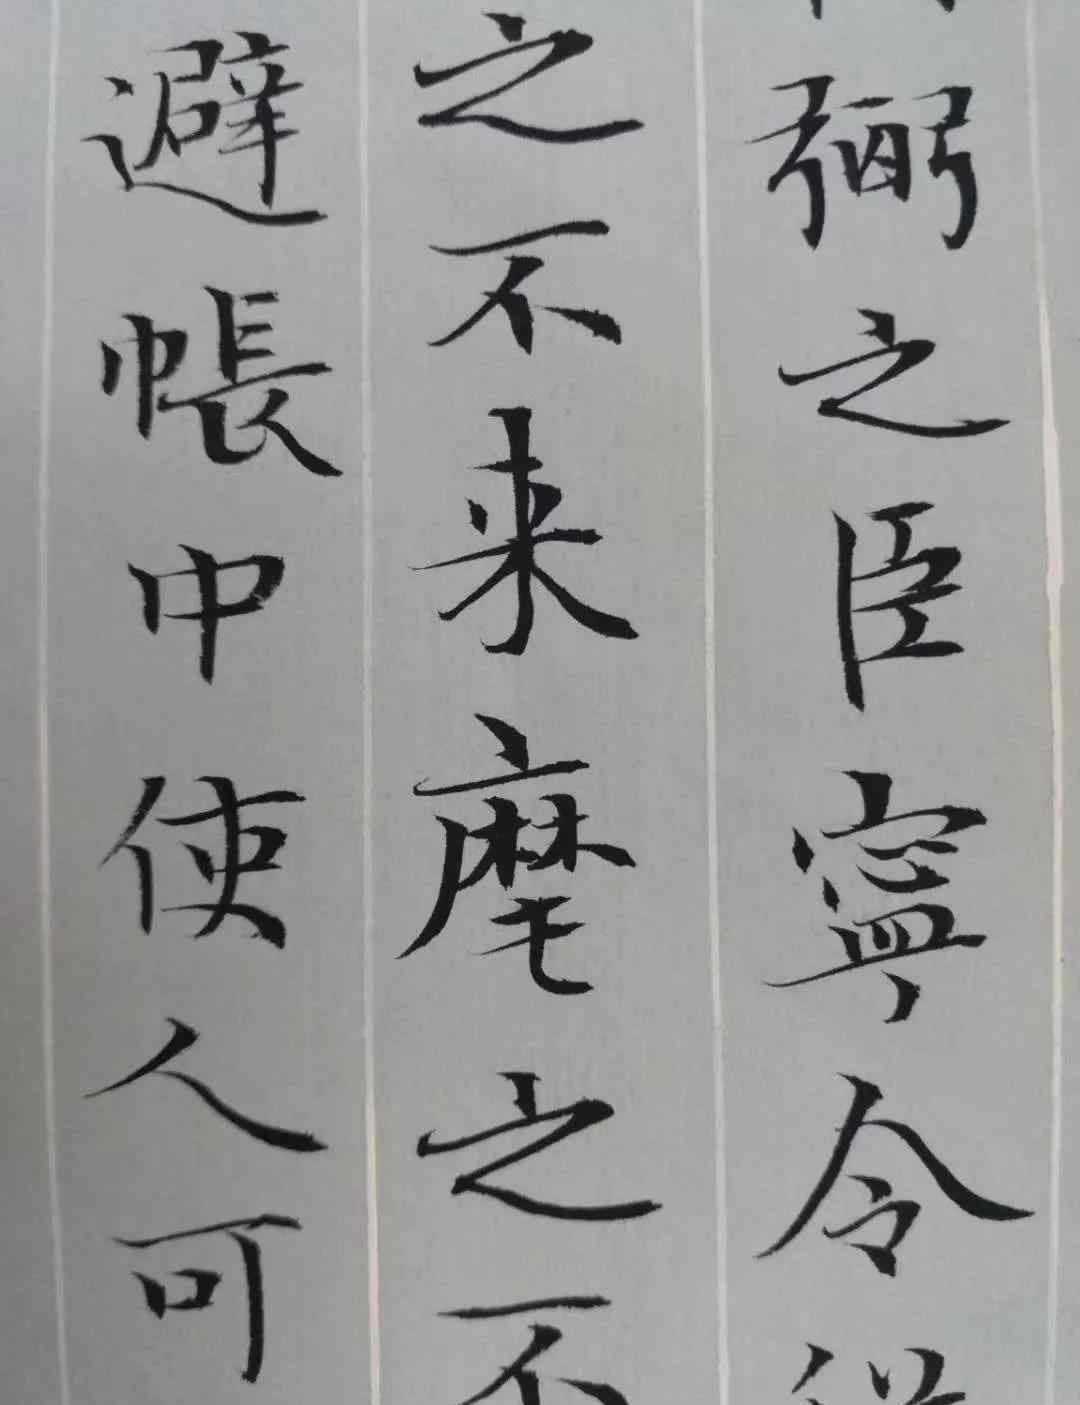 弼之臣寧令
之不来麾之不
避帳中使人可